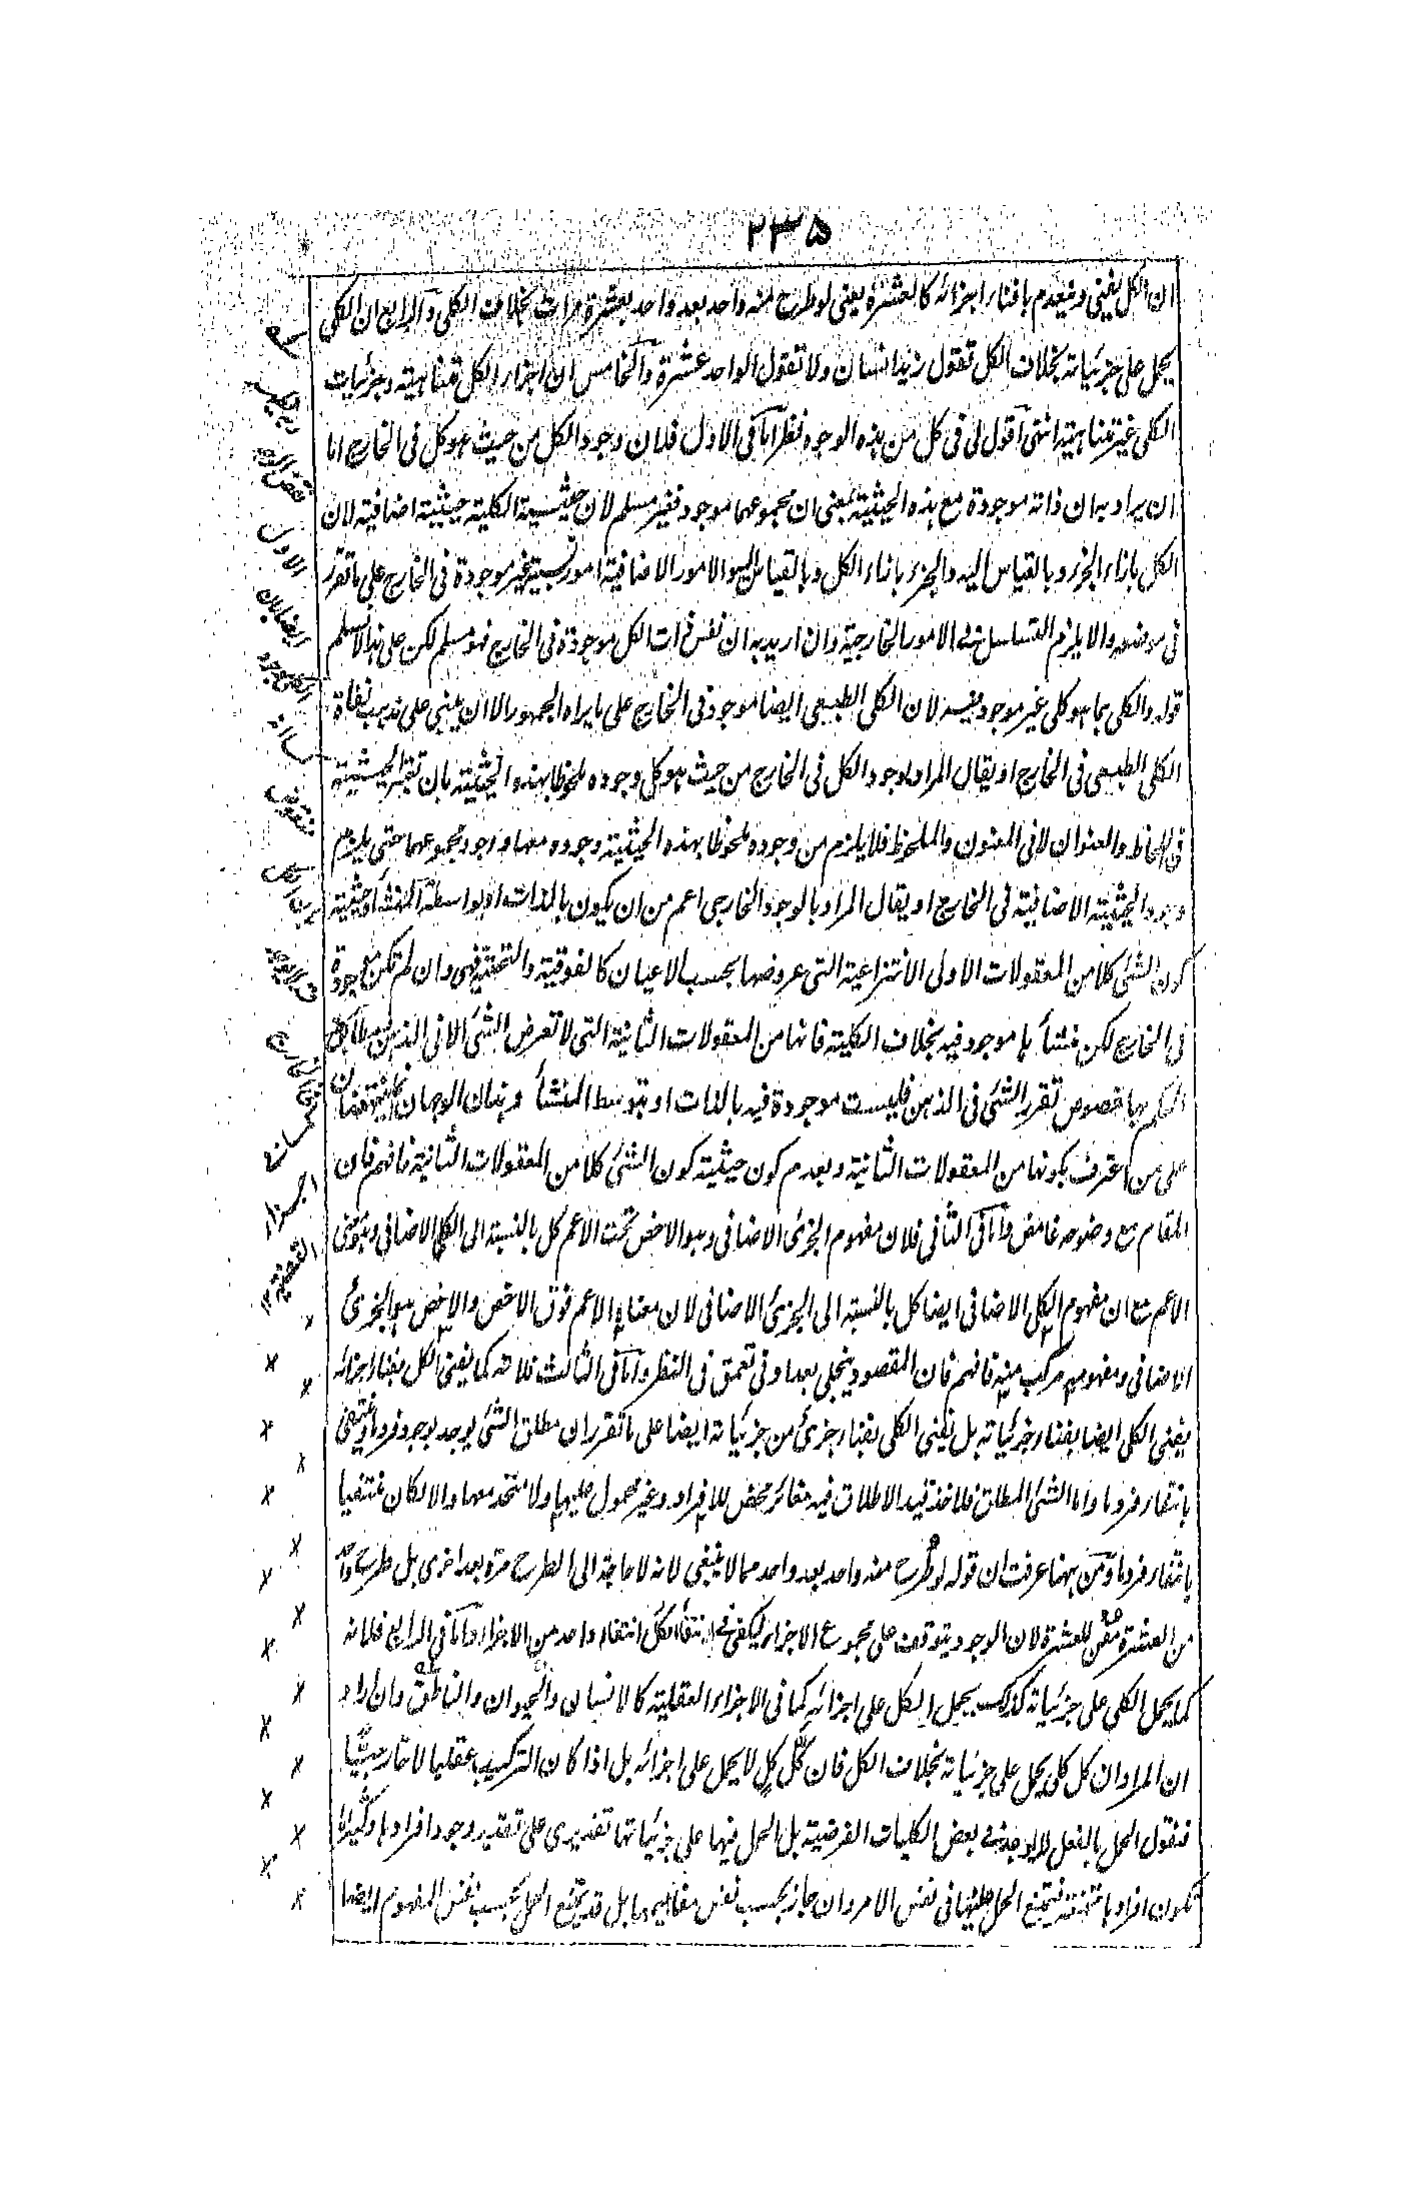 ۲۳۵
ان الكل يفنى وينعدم بافناء اجزائه كالعشرة يعنى لو طرح منه واحد بعد واحد بعشرة مرات بخلاف الكلى والرابع ان الكلى
يحمل على جزئياته بخلاف الكل تقول زيد انسان ولا تقول الواحد عشرة والخامس ان اجزاء الكل متناهية وجزئيات
الكلى غير متناهية انتهى اقول لى فى كل من هذه الوجوه نظر اما فى الاول فلان وجود الكل من حيث هو كل فى الخارج اما
ان يراد به ان ذاته موجودة مع هذه الحيثية بمعنى ان مجموعهما موجود فغير مسلم لان حيثية الكلية حيثية اضافية لان
الكل بازاء الجزء وبالقياس اليه والجزء بازاء الكل وبالقياس اليه والامور الاضافية امور نسبية غير موجودة فى الخارج على ما تقرر
فى موضعه والا يلزم التسلسل فى الامور الخارجية وان اريد به ان نفس ذات الكل موجودة فى الخارج فهو مسلم لكن على هذا لا نسلم
قوله والكلى بما هو كلى غير موجود فيه لان الكلى الطبيعى ايضا موجود فى الخارج على ما يراه الجمهور الا ان يبنى على مذهب نفاة
الكلى الطبيعى فى الخارج او يقال المراد بوجود الكل فى الخارج من حيث هو كل وجوده ملحوظا بهذه الحيثية بان تعتبر الحيثية
فى اللحاظ والعنوان لا فى المعنون والملحوظ فلا يلزم من وجوده ملحوظا بهذه الحيثية وجوده معها ووجود مجموعهما حتى يلزم
وجود الحيثية الاضافية فى الخارج او يقال المراد بالوجود الخارجى اعم من ان يكون بالذات او بواسطة المنشأ وحيثية
كون الشئ كلا من المعقولات الاولى الانتزاعية التى عروضها بحسب الاعيان كالفوقية والتحتية فهى وان لم تكن موجودة
فى الخارج لكن منشأها موجود فيه بخلاف الكلية فانها من المعقولات الثانية التى لا تعرض الشئ الا فى الذهن
الحكم بها خصوص تقرر الشئ فى الذهن فليست موجودة فيه بالذات او بتوسط المنشأ وهذان الوجهان
على من اعترف بكونها من المعقولات الثانية وبعدم كون حيثية كون الشئ كلا من المعقولات الثانية فافهم فان
المقام مع وضوحه غامض واما فى الثانى فلان مفهوم الجزئى الاضافى وهو الاخص تحت الاعم كل بالنسبة الى الكلى الاضافى وهو
الاعم مع ان مفهوم الكلى الاضافى ايضا كل بالنسبة الى الجزئى الاضافى لان معناه الاعم فوق الاخص والاخص هو الجزئى
الاضافى ومفهومه مركب منه فافهم فان المقصود ينجلى بعد ادنى تعمق فى النظر واما فى الثالث فلانه كما يفنى الكل بفناء اجزائه
يفنى الكلى ايضا بفناء جزئياته بل يفنى الكلى بفناء جزئى من جزئياته ايضا على ما تقرر ان مطلق الشئ يوجد بوجود فرد ما وينتفى
بانتفاء فرد ما واما الشئ المطلق فلاخذ قيد الاطلاق فيه مغائر محض للافراد وغير محمول عليها ولا متحد معها والا لكان منتفيا
بانتفاء فرد ما ومن ههنا عرفت ان قوله لو طرح منه واحد بعد واحد مما لا ينبغى لانه لا حاجة الى الطرح مرة بعد اخرى بل طرح واحد
من العشرة مفن للعشرة لان الوجود يتوقف على مجموع الاجزاء ليكفى فى انتفاء الكل انتفاء واحد من الاجزاء واما فى الرابع فلانه
كما يحمل الكلى على جزئياته كذلك يحمل الكل على اجزائه كما فى الاجزاء العقلية كالانسان والحيوان والناطق وان اراد
ان المراد ان كل كلى يحمل على جزئياته بخلاف الكل فان كل كل لا يحمل على اجزائه بل اذا كان التركيب عقليا لا خارجيا
فنقول الحمل بالفعل لا يوجد فى بعض الكليات الفرضية بل الحمل فيها على جزئياتها تقديرى على تقدير وجود افرادها وكثيرا ما
تكون افرادها ممتنعة فيمتنع الحمل عليها فى نفس الامر وان جاز بحسب نفس مفاهيمها بل قد يمتنع الحمل بحسب نفس المفهوم ايضا
الاول
ايضا بان
منقوض
فى الخارج
اجزاء
القضية ۱۲